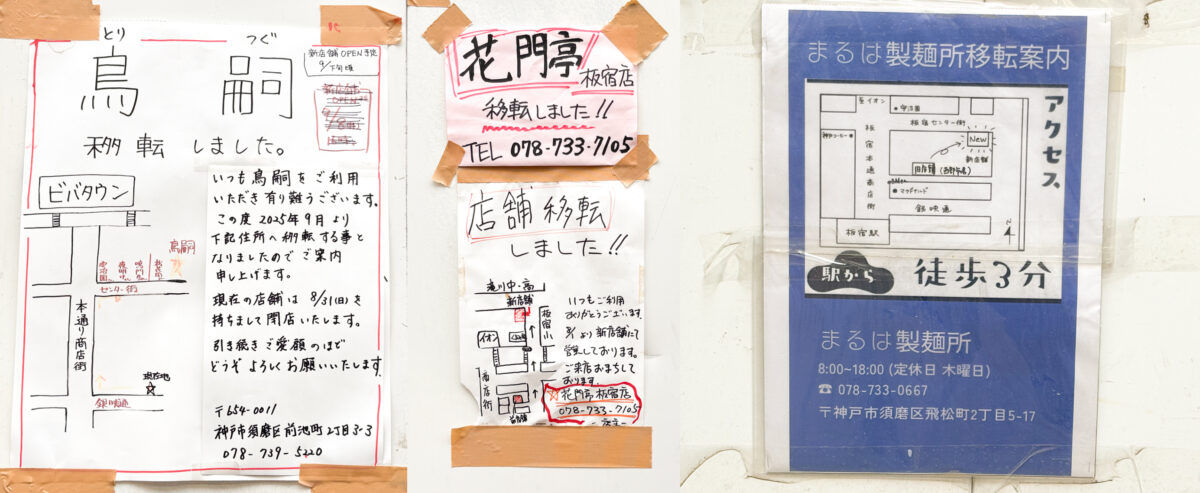 とり つぐ
鳥 嗣
移転しました。
新店舗OPEN予定
9/下旬頃
新店舗
OPEN
ビバタウン
鳥嗣
センター街
本通り商店街
現在地
銀映通
いつも鳥嗣をご利用
いただき有り難うございます。
この度 2025年9月より
下記住所へ移転する事と
なりましたのでご案内
申し上げます。
現在の店舗は 8/31(日)を
持ちまして閉店いたします。
引き続きご愛顧のほど
どうぞよろしくお願いいたします。
〒654-0011
神戸市須磨区前池町2丁目3-3
078-739-5220
花門亭
板宿店
移転しました!!
TEL 078-733-7105
店舗移転
しました!!
滝川中・高
新店舗
イオン
板宿小
商店街
いつもご利用
ありがとうございます
より新店舗にて
営業しております。
ご来店おまちして
おります。
花門亭板宿店
078-733-7105
まるは製麺所移転案内
アクセス
至イオン
板宿センター街
板宿本通商店街
New
新店舗
旧店舗
マクドナルド
銀映通
板宿駅
N
駅から
徒歩3分
まるは製麺所
8:00~18:00 (定休日 木曜日)
☎ 078-733-0667
〒神戸市須磨区飛松町2丁目5-17